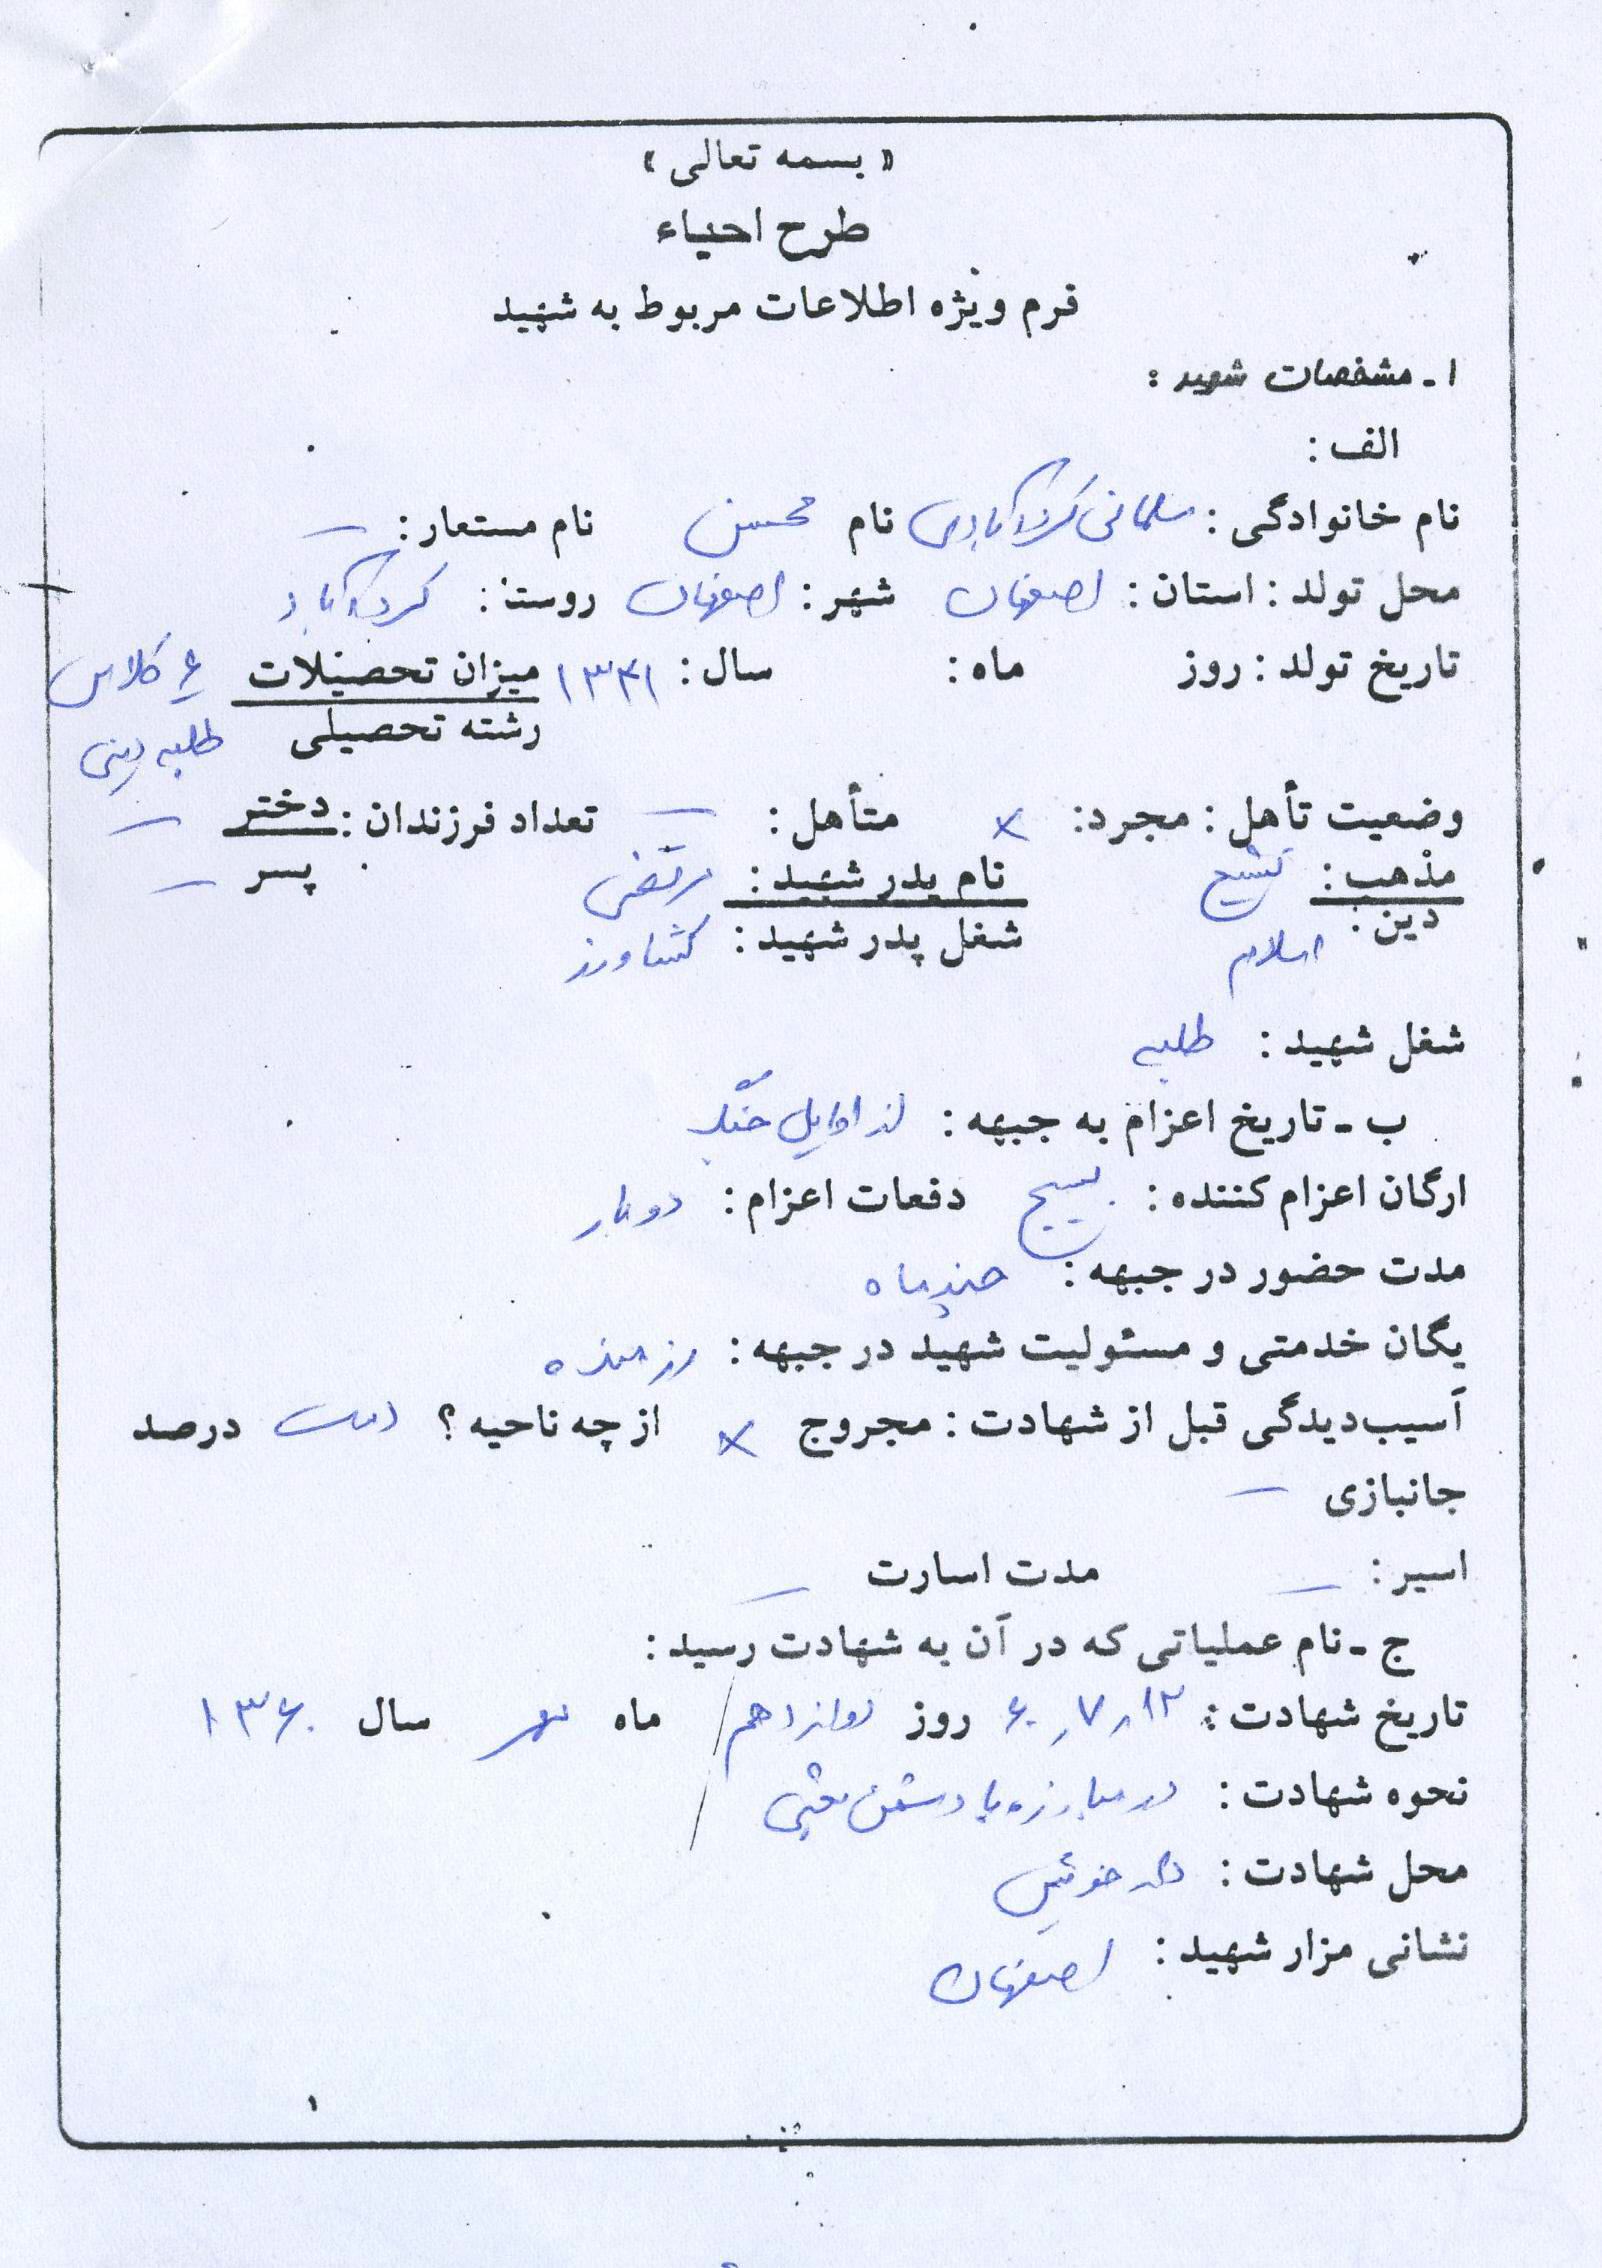 « بسمه تعالی »
طرح احیاء
فرم ویژه اطلاعات مربوط به شهید
۱ - مشخصات شهید :
الف :
نام خانوادگی : سلمانی کردآبادی نام محسن نام مستعار : —
محل تولد : استان : اصفهان شهر : اصفهان روستا : کردآباد
تاریخ تولد : روز ماه : سال : ۱۳۴۱ میزان تحصیلات ۶ کلاس
رشته تحصیلی طلبه دینی
وضعیت تأهل : مجرد : × متأهل : — تعداد فرزندان : دختر —
مذهب : تشیع نام پدر شهید : مرتضی پسر —
دین : اسلام شغل پدر شهید : کشاورز
شغل شهید : طلبه
ب - تاریخ اعزام به جبهه : از اوایل جنگ
ارگان اعزام کننده : بسیج دفعات اعزام : دوبار
مدت حضور در جبهه : چند ماه
یگان خدمتی و مسئولیت شهید در جبهه : رزمنده
آسیب‌دیدگی قبل از شهادت : مجروح × از چه ناحیه ؟ دست درصد
جانبازی —
اسیر : — مدت اسارت —
ج - نام عملیاتی که در آن به شهادت رسید :
تاریخ شهادت : ۱۲ ر ۷ ر ۶۰ روز دوازدهم ماه مهر سال ۱۳۶۰
نحوه شهادت : در مبارزه با دشمن بعثی
محل شهادت : دارخوئین
نشانی مزار شهید : اصفهان
۱